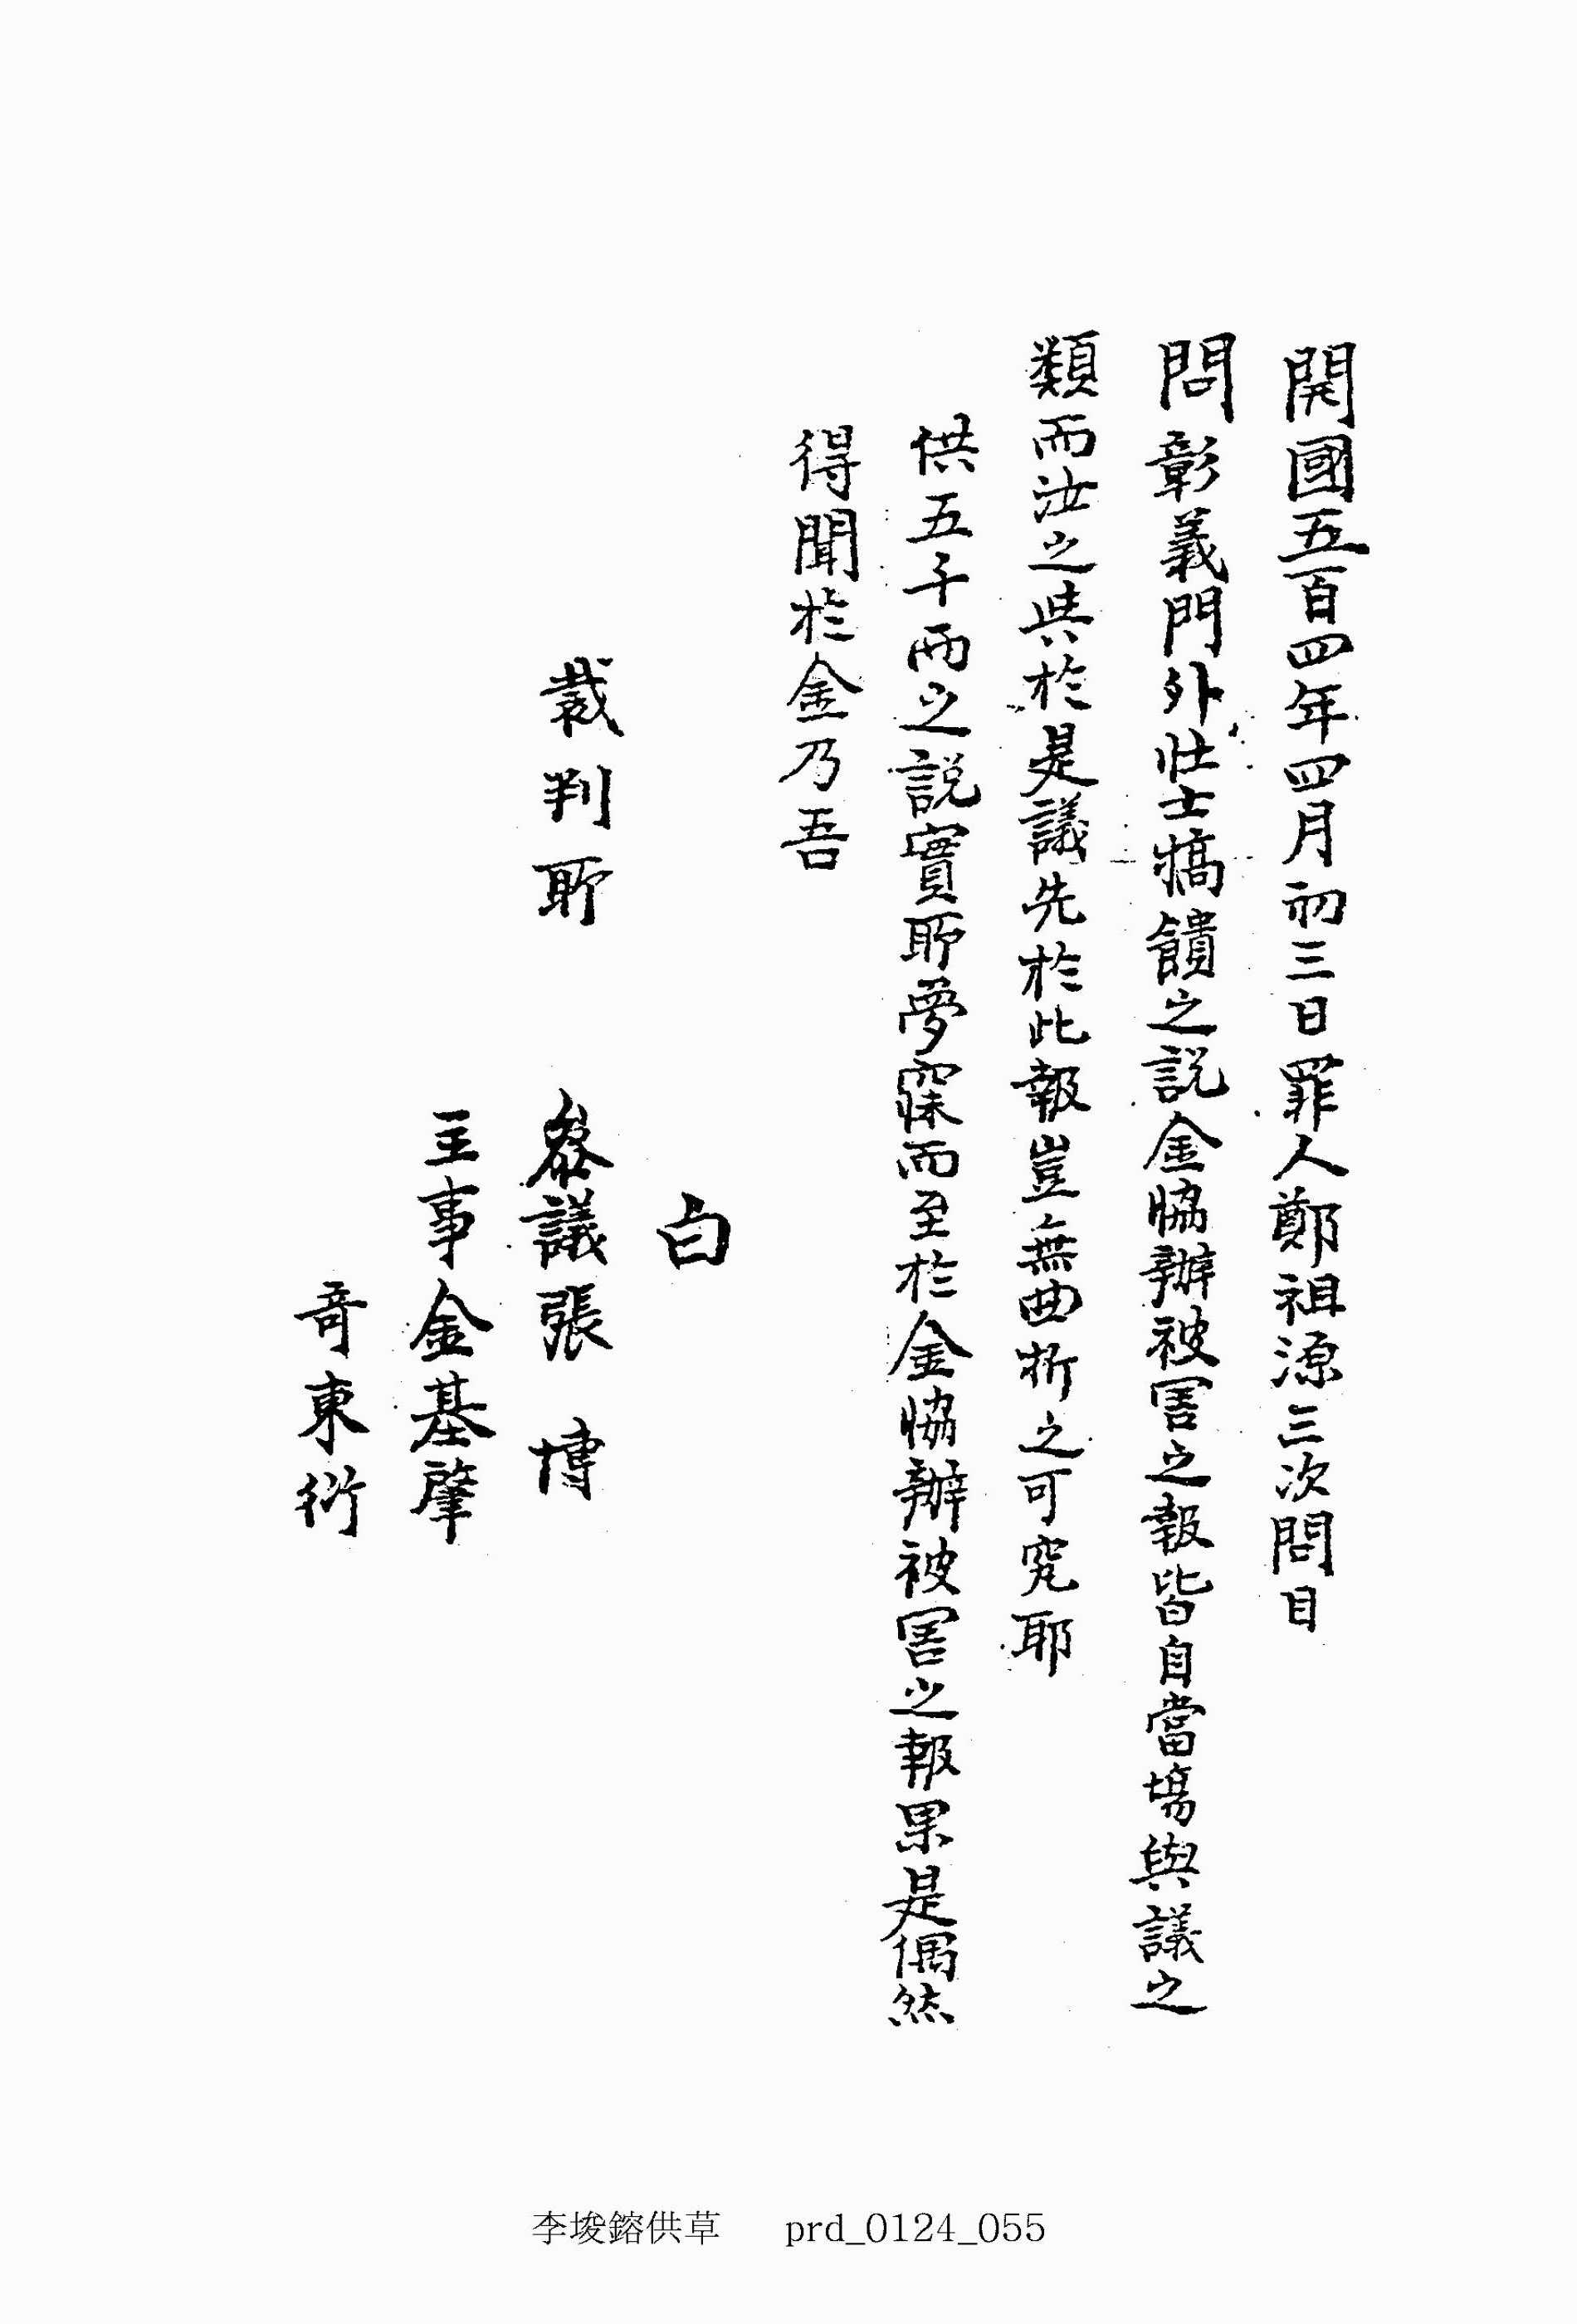 開國五百四年四月初三日罪人鄭祖源三次問目
問彰義門外壯士犒饋之說金協辦被害之報皆自當場與議之
類而汝之與於是議先於此報豈無曲折之可究耶
供五千兩之說實所夢寐而至於金協辦被害之報果是偶然
得聞於金乃吾
白
裁判所 參議張博
主事金基肇
奇東衍
李埈鎔供草 prd_0124_055